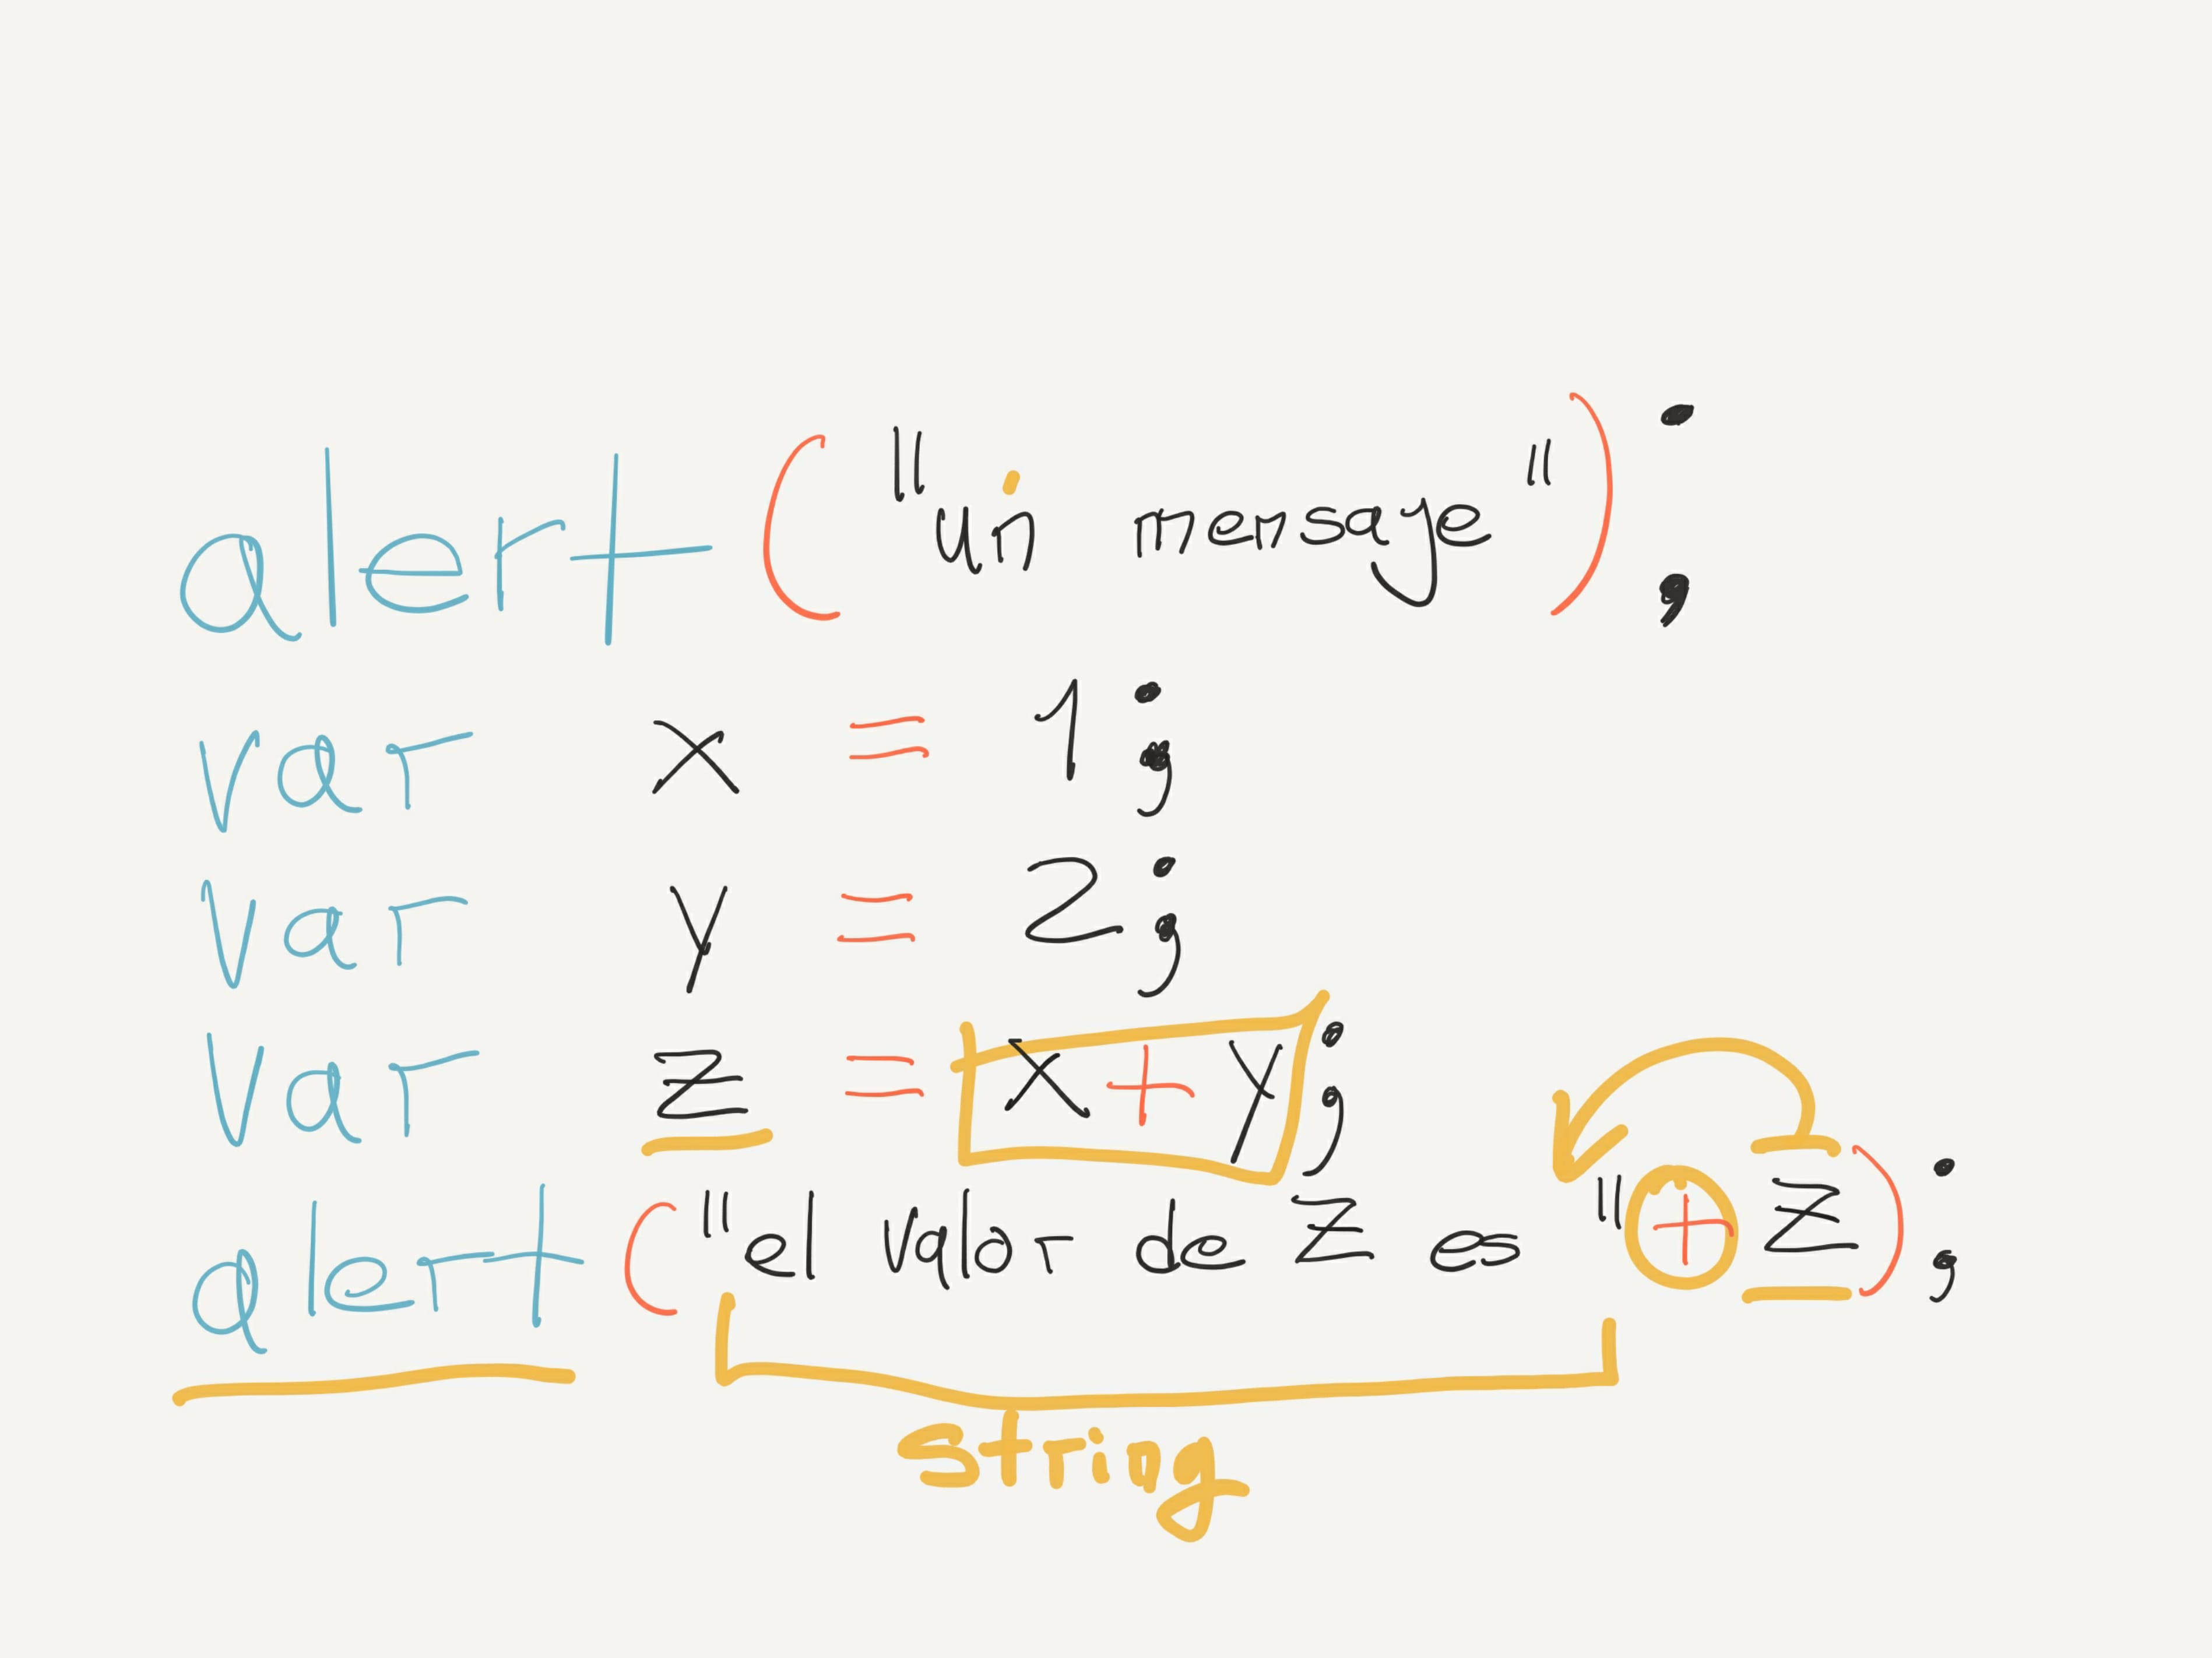 alert ("un mensaye");
var x = 1;
var y = 2;
var z = x + y;
alert ("el valor de z es " + z);
string